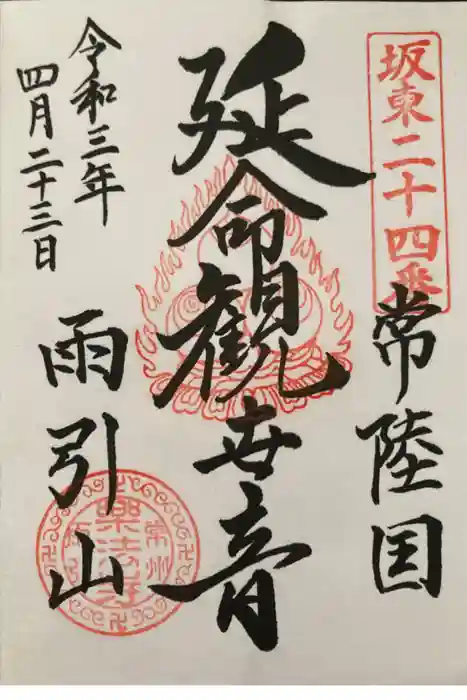 坂東二十四番
常陸国
延命観世音
雨引山
令和三年
四月二十三日
樂法寺
常州